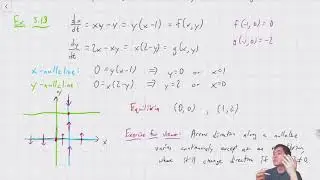 Ex 5.13
dx/dt = xy - y = y(x-1) = f(x,y)
f(-1,0) = 0
dy/dt = 2x - xy = x(2-y) = g(x,y)
g(-1,0) = -2
x-nullcline: 0 = y(x-1) ⇒ y=0 or x=1
y-nullcline: 0 = x(2-y) ⇒ y=2 or x=0
y
x
Equilibria (0,0), (1,2)
Exercise for viewer: Arrow direction along a nullcline
varies continuously except at an
change direction if